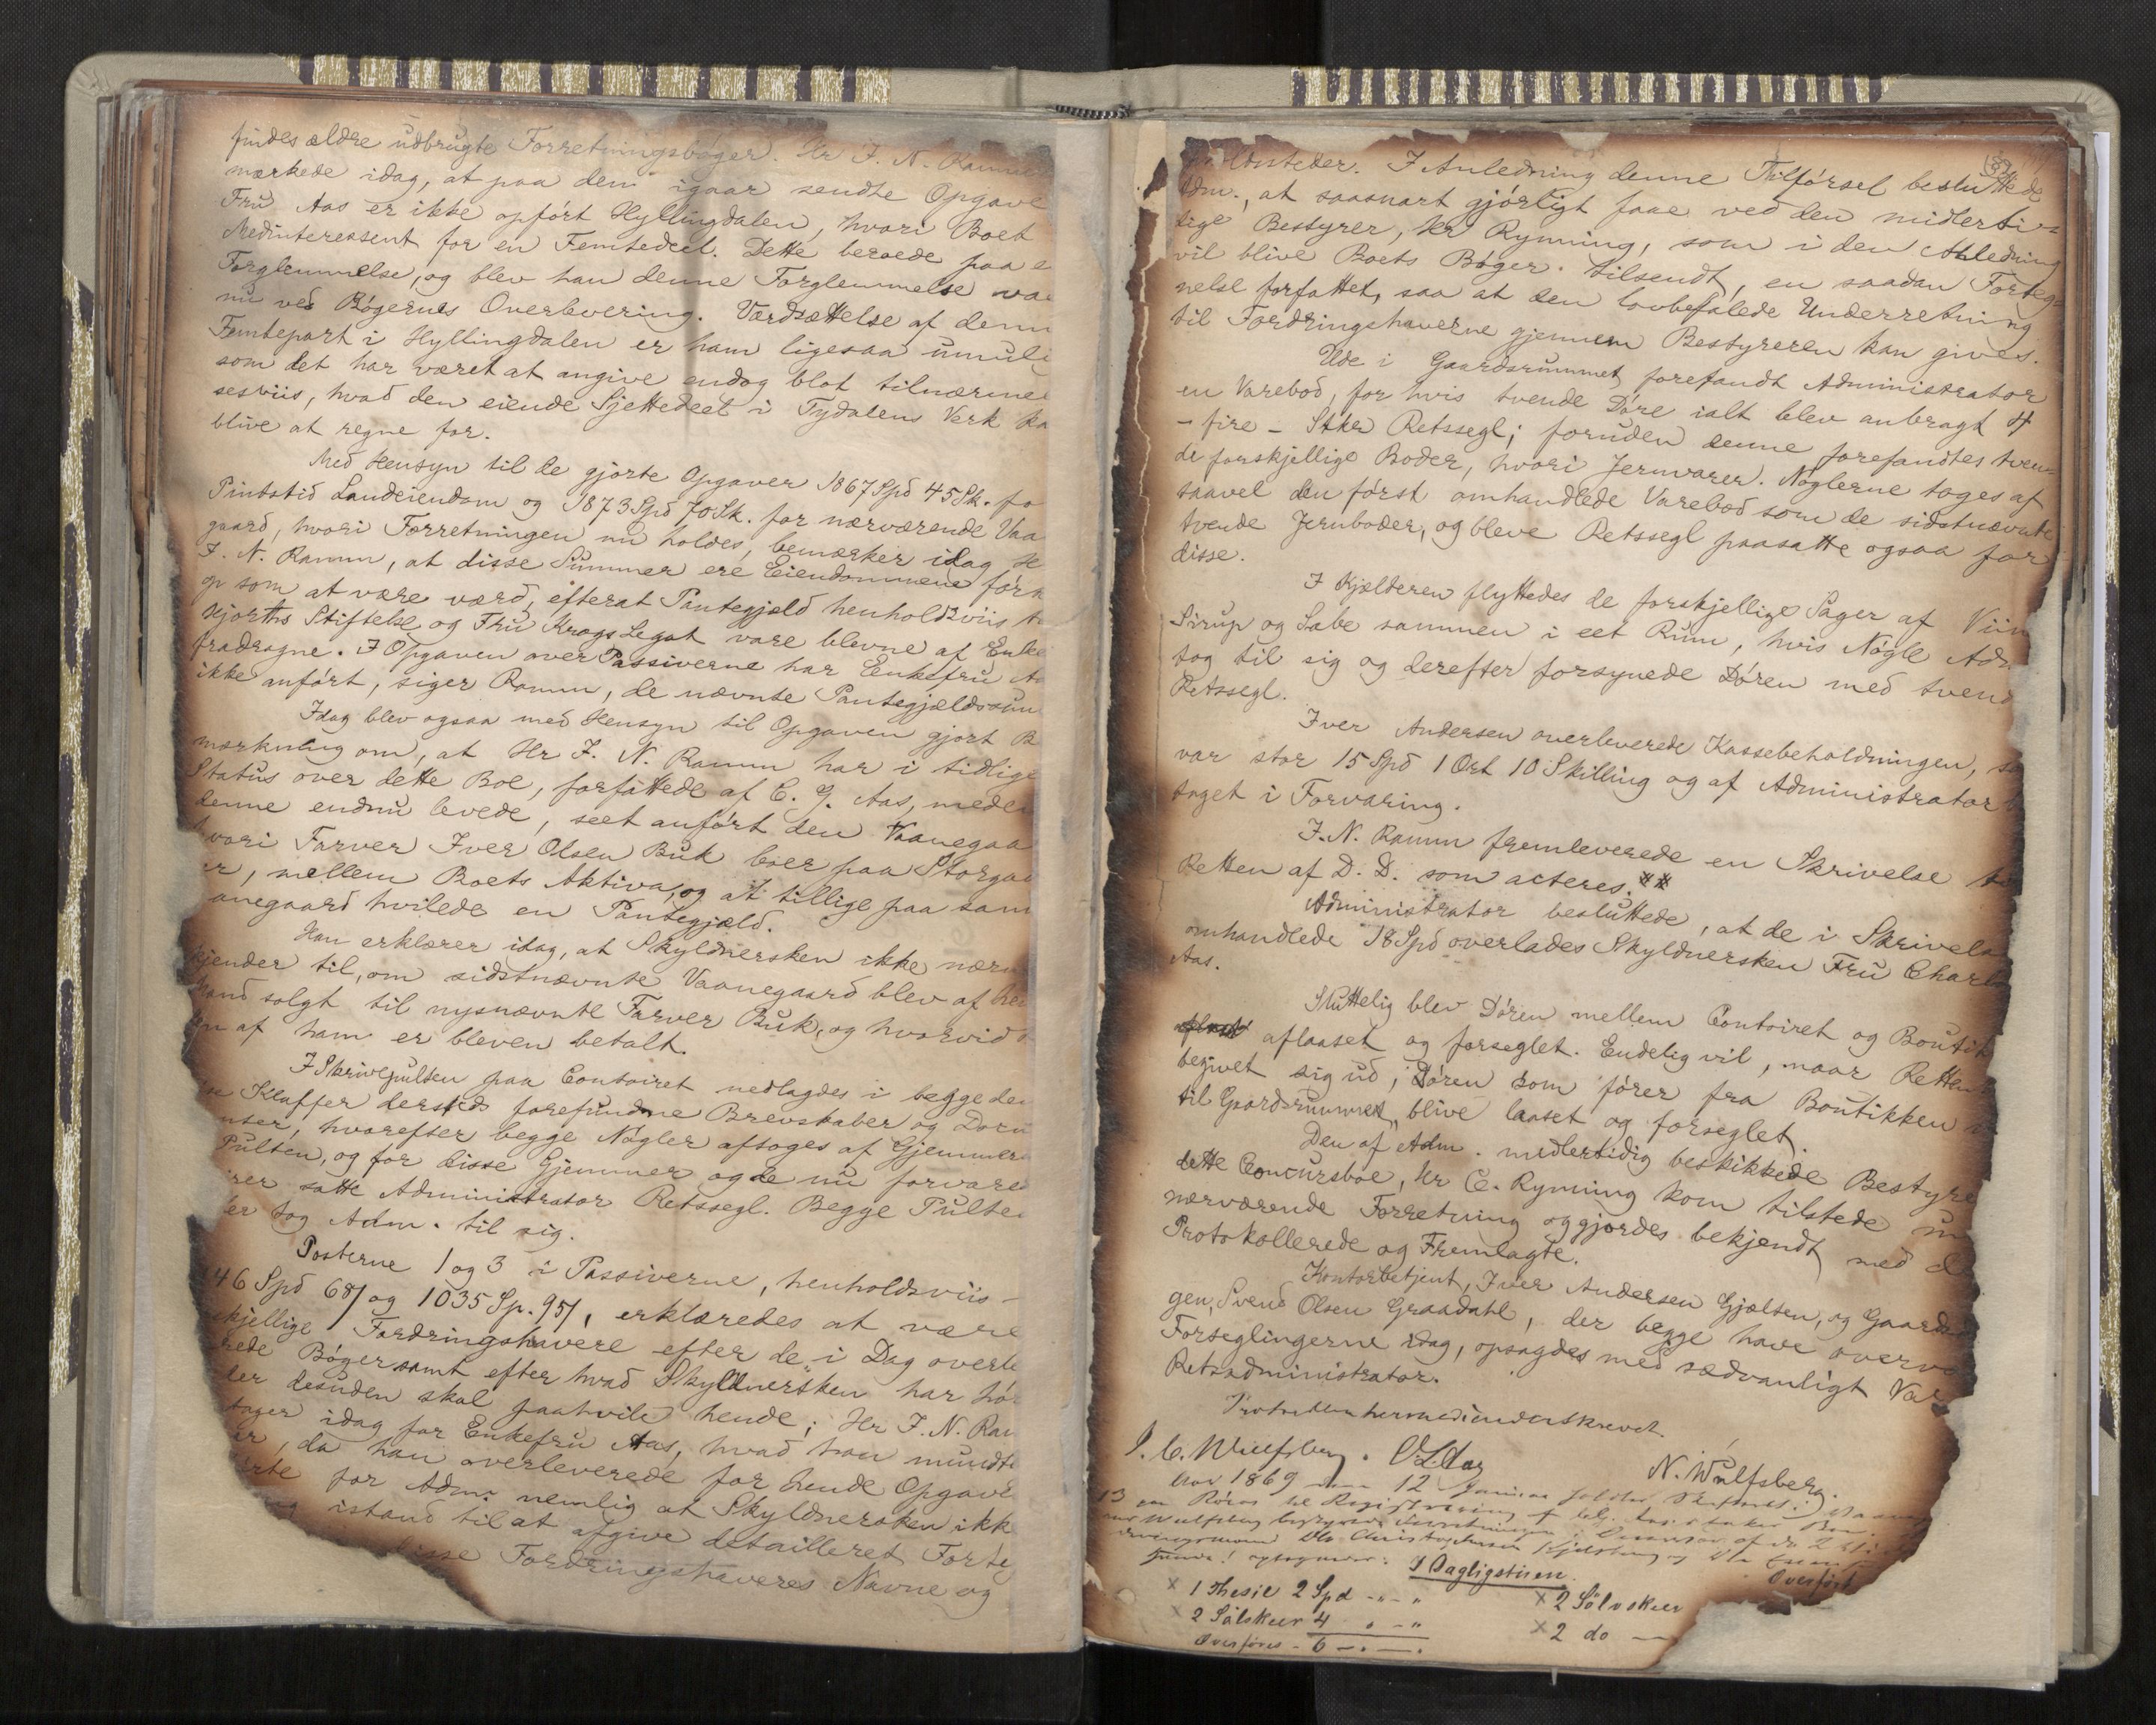 findes ældre udbrugte Forretningsbøger. Hr J. N. Ramm
mærkede idag, at paa den igaar sendte Opgave
Fru Aas er ikke opført Hyllingdalen, hvori Boet
Medinteressent for en Femtedeel. Dette beroede paa e
Forglemmelse, og blev han denne Forglemmelse va
nu ved Bøgernes Overlevering. Værdsættelse af denn
Femtepart i Hyllingdalen er ham ligesaa umuli
som det har været at angive endog blot tilnærmel
sesviis, hvad den eiende Sjettedeel i Tydalens Verk ka
blive at regne for.
Med Hensyn til de gjorte Opgaver 1867 Spd 45 Sk. fo
Pintstid Landeiendom og 1873 Spd 70 Sk. for nærværende Vaa
gaard, hvori Forretningen nu holdes, bemærker idag H
J. N. Ramm, at disse Summer ere Eiendommene før
op som at være værd, efterat Pantegjæld henholdsviis t
Hjorths Stiftelse og Fru Krags Legat vare blevne af Enke
fradragne. I Opgaven over Passiverne har Enkefru A
ikke anført, siger Ramm, de nævnte Pantegjældssum
Idag blev ogsaa med Hensyn til Opgaven gjort B
mærkning om, at Hr J. N. Ramm har i tidlige
Status over dette Boe, forfattede af C. G. Aas, meden
denne endnu levede, seet anført den Vaanegaa
hvori Farver Iver Olsen Buk boer paa Storgad
er, mellem Boets Aktiva, og at tillige paa sam
anegaard hvilede en Pantegjæld.
Han erklærer idag, at Skyldnersken ikke nærv
kjender til, om sidstnævnte Vaanegaard blev af he
Mand solgt til nysnævnte Farver Buk, og hvorvid
en af ham er bleven betalt.
I Skrivepulten paa Contoiret nedlagdes i begge de
Klaffer dersteds forefundne Brevskaber og Docu
nter, hvorefter begge Nøgler aftoges af Gjemmer
Pulten, og for disse Gjemmer og de nu forvare
rer satte Administrator Retssegl. Begge Pulte
ler tog Adm. til sig.
Posterne 1 og 3 i Passiverne, henholdsviis -
46 Spd 68/ og 1035 Sp. 95/, erklæredes at være
skjellige Fordringshavere efter de i Dag overle
rede Bøger samt efter hvad Skyldnersken har hø
ler desuden skal paahvile hende; Hr J. N. Ram
tager idag for Enkefru Aas, hvad han mundt
er, da han overleverede for hende Opgave
ørte for Adm: nemlig at Skyldnersken ikk
istand til at afgive detailleret Forte
disse Fordringshaveres Navne og
holdsteder. I Anledning denne Tilførsel besluttede
Adm., at saasnart gjørligt faae ved den midlerti-
dige Bestyrer, Hr Ryming, som i den Anledning
vil blive Boets Bøger tilsendt, en saadan Forteg-
nelse forfattet, saa at den lovbefalede Underretning
til Fordringshaverne gjennem Bestyreren kan gives.
Ude i Gaardsrummet forefandt Administrator
en Varebod, for hvis tvende Døre ialt blev anbragt 4
- fire - Stkr Retssegl; foruden denne forefandtes tven-
de forskjellige Boder, hvori Jernvarer. Nøglerne toges af
saavel den først omhandlede Varebod som de sidstnævnte
tvende Jernboder, og bleve Retssegl paasatte ogsaa for
disse.
I Kjælderen flyttedes de forskjellige Sager af Viin
Sirup og Sæbe sammen i eet Rum, hvis Nøgle Adm
tog til sig og derefter forsynede Døren med tvend
Retssegl.
Iver Andersen overleverede Kassebeholdningen, so
var stor 15 Spd 1 Ort 10 Skilling og af Administrator b
taget i Forvaring.
J. N. Ramm fremleverede en Skrivelse ti
Retten af D. D. som acteres.
Administrator besluttede, at de i Skrivels
omhandlede 18 Spd overlades Skyldnersken Fru Charl
Aas.
Sluttelig blev Døren mellem Contoiret og Boutik
aflaaset og forseglet. Endelig vil, naar Retten
begivet sig ud, Døren som fører fra Boutikken
til Gaardsrummet, blive laaset og forseglet
Den af Adm. midlertidig beskikkede Bestyre
dette Concursboe, Hr C. Ryming kom tilstede un
nærværende Forretning og gjordes bekjendt med d
Protokollerede og Fremlagte.
Kontorbetjent, Iver Andersen Gjælten, og Gaards
gen, Svend Olsen Graadahl, der begge have overv
Forseglingerne idag, opsagdes med sædvanligt Va
Retsadministrator.
Protocollen hermed underskrevet.
J. C. Wulfsberg. O. L. Aas N. Wulfsberg.
Aar 1869 den 12 Januar
I Dagligstuen. Overført
× 1 Thesie 2 Spd - " - " × 2 Sölvskeer
× 2 Sálskeer 4 " - " × 2 do —
Overføres - 6 - . - .